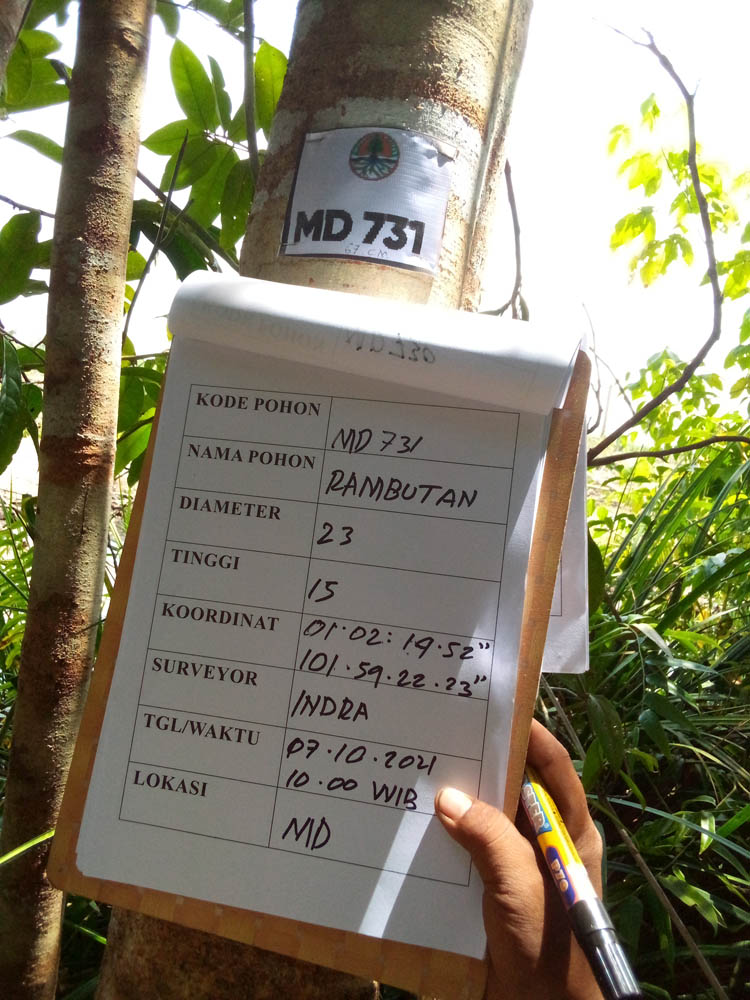 MD 731
67 CM
KODE POHON
MD 731
NAMA POHON
RAMBUTAN
DIAMETER
23
TINGGI
15
KOORDINAT
01.02:19.52"
101.59.22.23"
SURVEYOR
INDRA
TGL/WAKTU
07.10.2021
10.00 WIB
LOKASI
MD